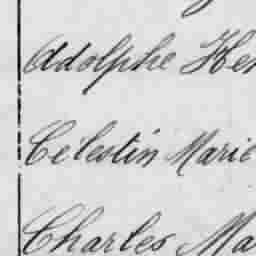 Adolphe Hen
Célestin Marie
Charles Ma